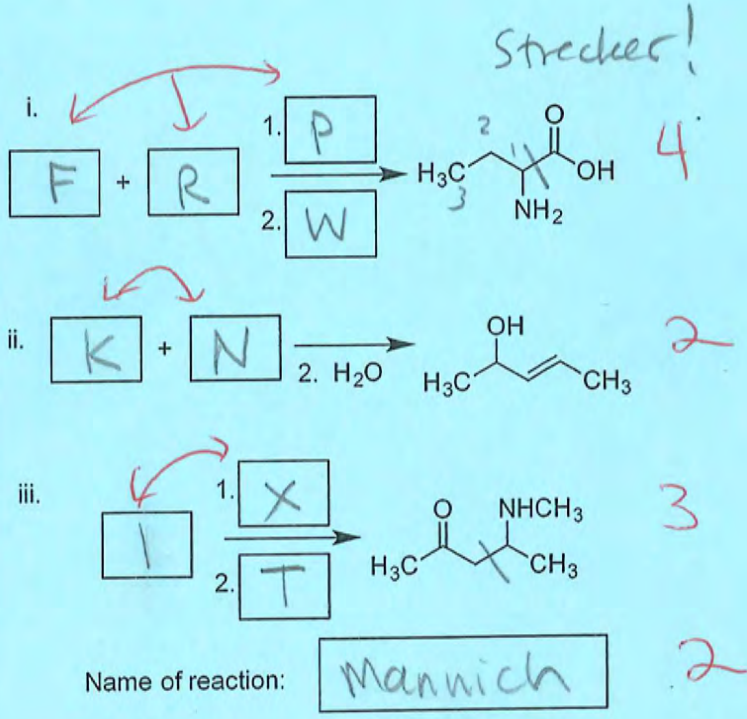 Strecker!
i.
F + R
1. P
2. W
H3C
2
1
3
O
OH
NH2
4
ii.
K + N
2. H2O
OH
H3C
CH3
2
iii.
I
1. X
2. T
O
NHCH3
H3C
CH3
3
Name of reaction: Mannich
2